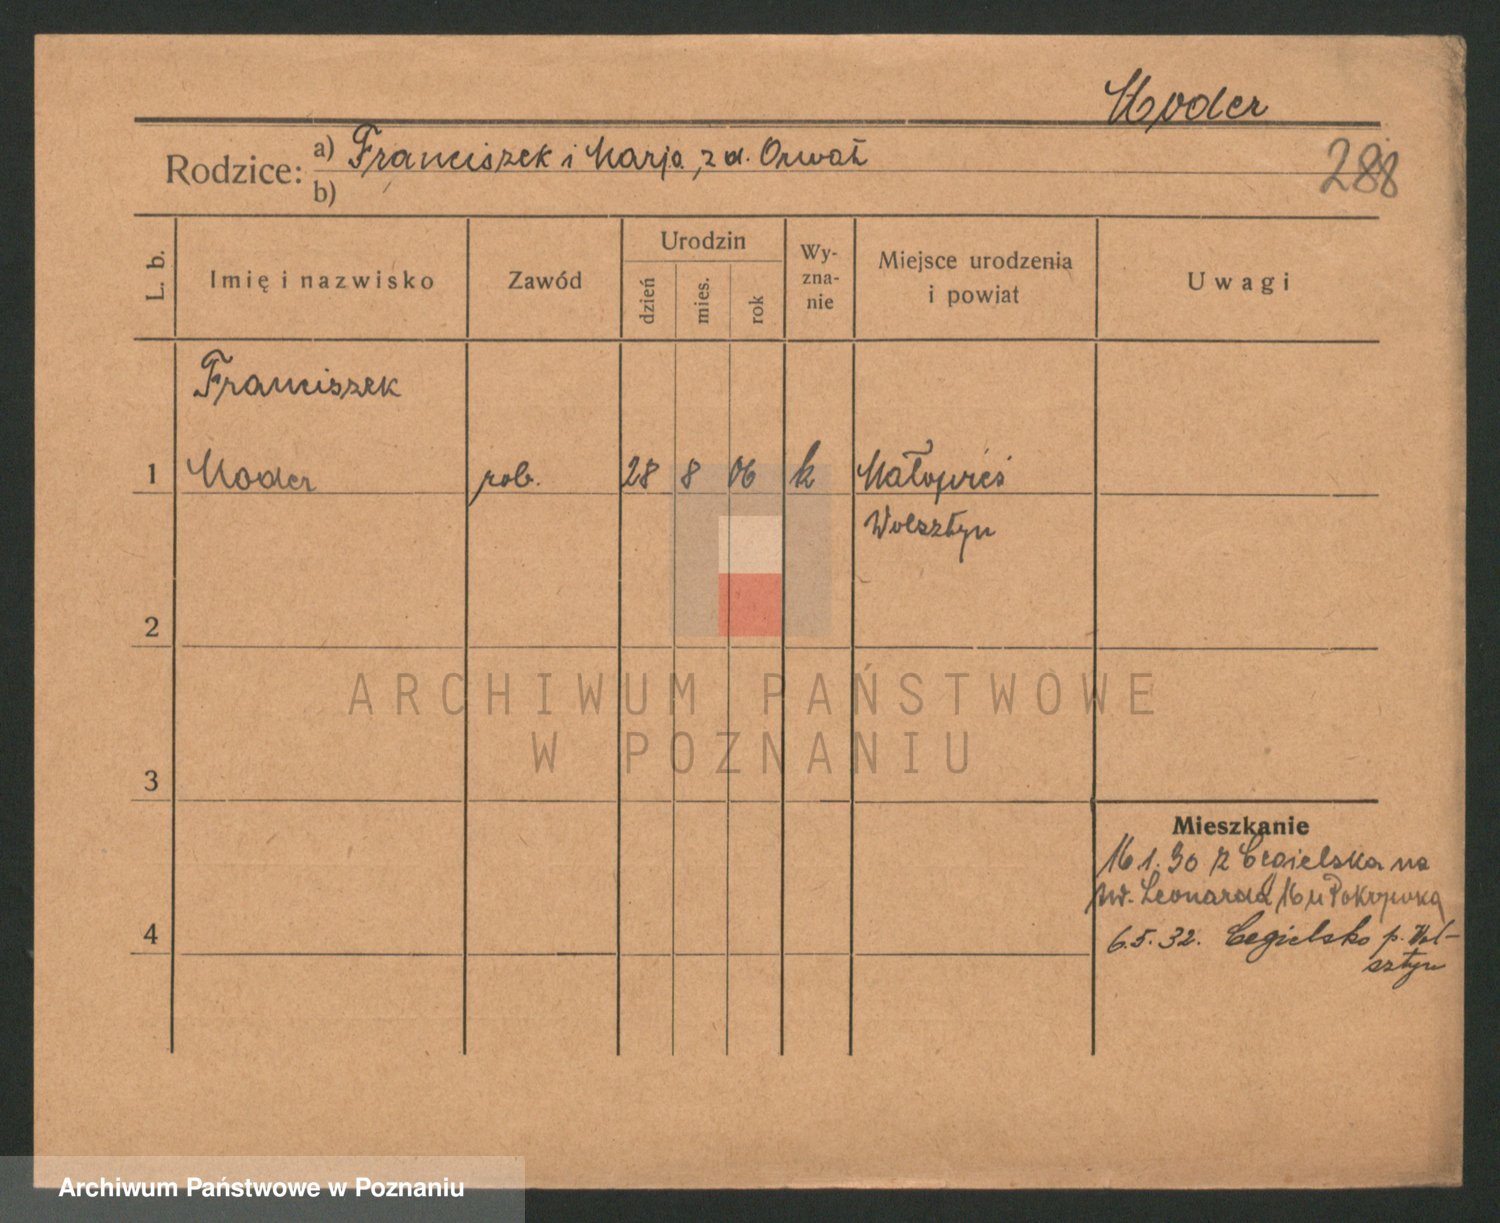 Moder
288
Rodzice: a) Franciszek i Marja, z d. Orwat
b)
L. b. Imię i nazwisko Zawód Urodzin dzień mies. rok Wyznanie Miejsce urodzenia i powiat Uwagi
Franciszek
1 Moder rob. 28 8 06 k Małowieś
Wolsztyn
2
ARCHIWUM PAŃSTWOWE
W POZNANIU
3
Mieszkanie
16 1. 30 z Cegielska na
św. Leonarda 16 u
4
6.5.32. Cegielsko p. Wol-
sztyn
Archiwum Państwowe w Poznaniu